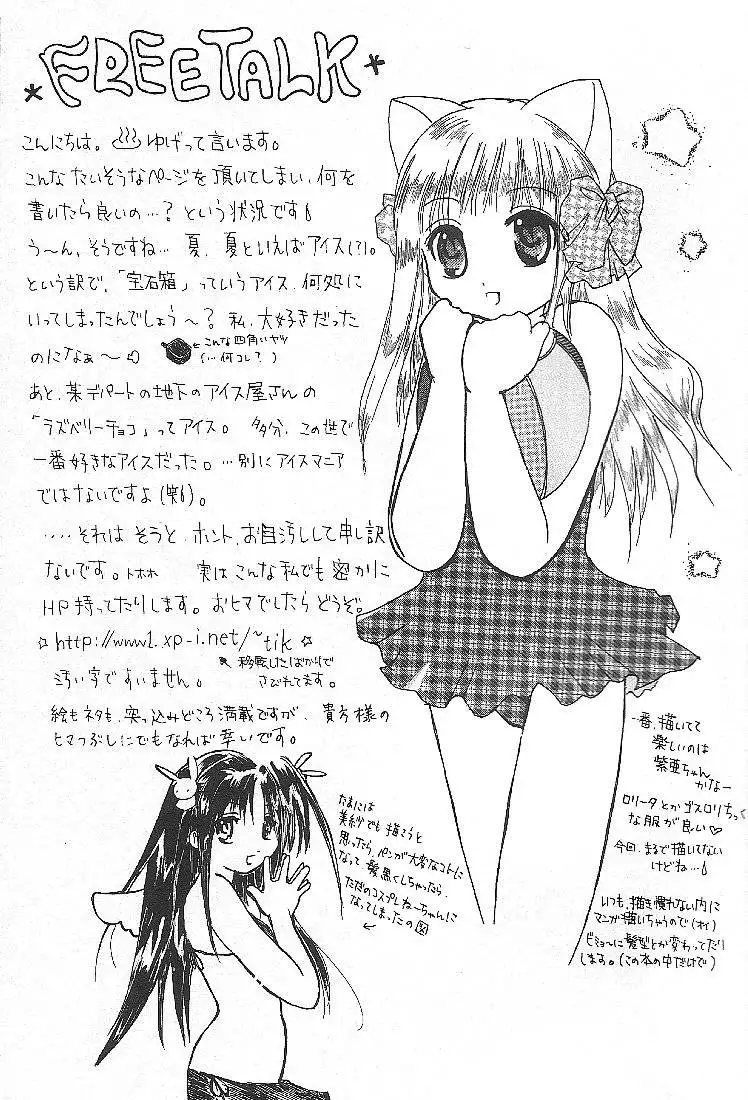 FREE TALK
こんにちは。♨ゆげって言います。
こんなたいそうなページを頂いてしまい、何を
書いたら良いの…?という状況です
う〜ん、そうですね… 夏、夏といえばアイス(?!)。
という訳で、「宝石箱」っていうアイス、何処に
いってしまったんでしょう〜? 私、大好きだった
のになぁ〜
←こんな四角いヤツ
(…何コレ?)
あと、某デパートの地下のアイス屋さんの
「ラズベリーチョコ」ってアイス。 多分、この世で
一番好きなアイスだった。…別にアイスマニア
ではないですよ(笑)。
‥‥それは そうと、ホント、お目汚しして申し訳
ないです。トホホ 実はこんな私でも密かに
HP持ってたりします。おヒマでしたらどうぞ。
☆ http://www1.xp-i.net/~tik ☆
移転したばかりで
さびれてます。
汚い字ですいません。
絵もネタも、突っ込みどころ満載ですが、貴方様の
ヒマつぶしにでもなれば幸いです。
一番、描いてて
楽しいのは
紫亜ちゃん
かなー
ロリータとかゴスロリちっく
な服が良い♡
今回、まるで描いてない
けどね…
いつも、描き慣れない内に
マンガ描いちゃうので(オイ)
ビミョ〜に髪型とか変わってたり
します。(この本の中だけで)
たまには
美紗でも描こうと
思ったら、ペンが大変なコトに
なって、髪黒くしちゃったら、
ただのコスプレねーちゃんに
なってしまったの図